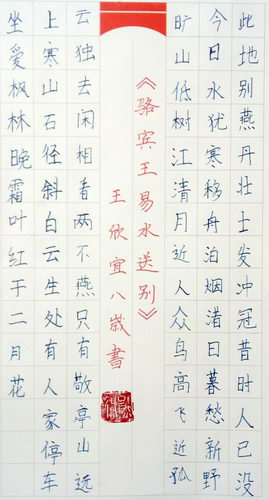 此地别燕丹壮士发冲冠昔时人已没
今日水犹寒移舟泊烟渚日暮愁新野
旷山低树江清月近人众鸟高飞近孤
《骆宾王易水送别》
王欣宜八歲書
云独去闲相看两不燕只有敬亭山远
上寒山石径斜白云生处有人家停车
坐爱枫林晚霜叶红于二月花